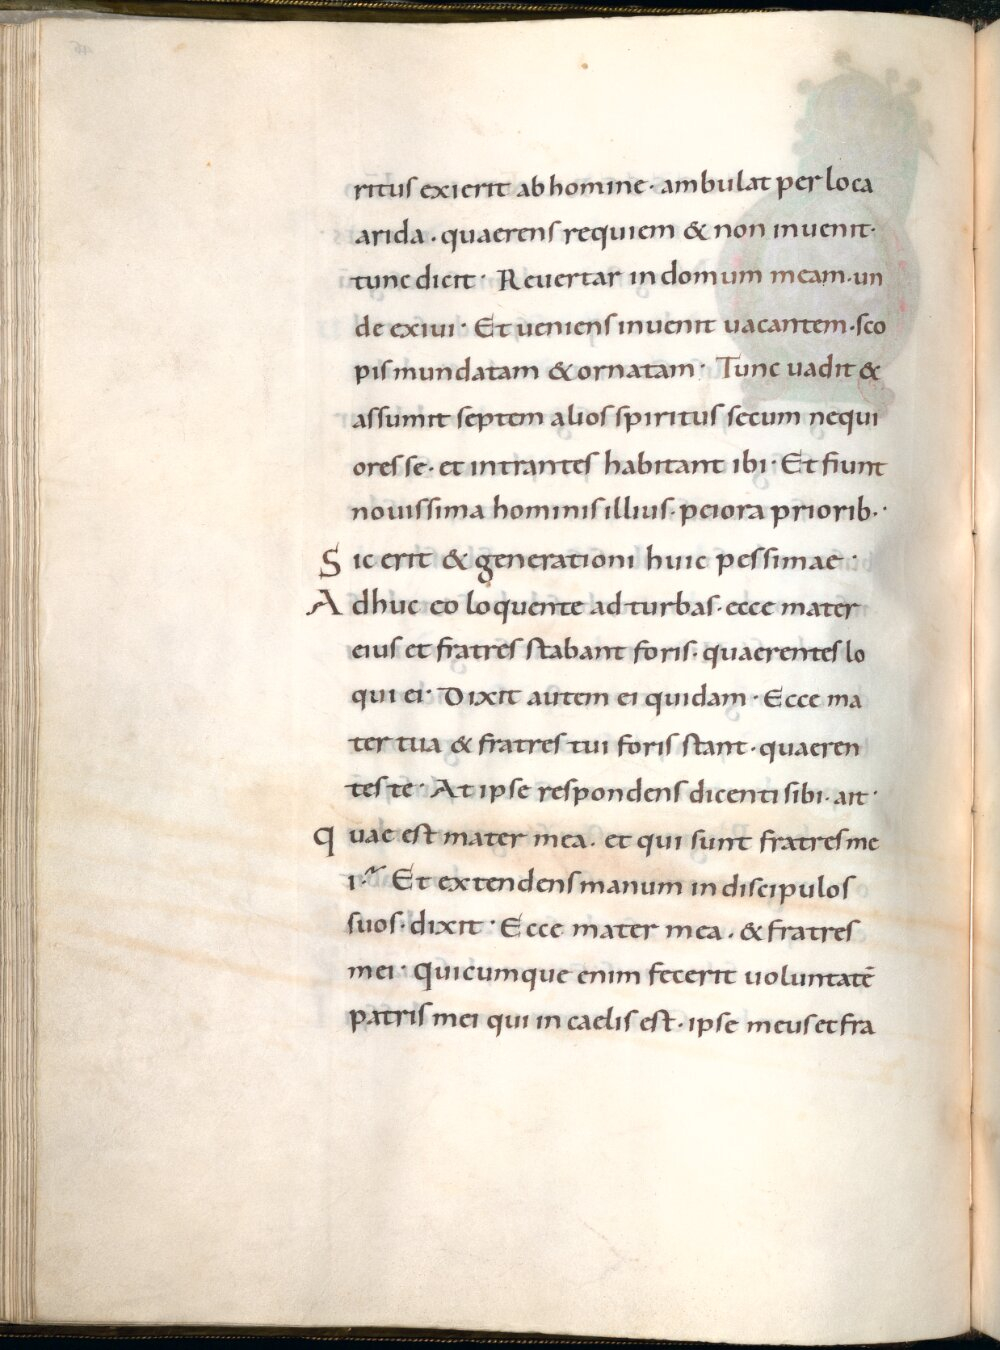 ritus exierit ab homine · ambulat per loca
arida · quaerens requiem & non inuenit ·
tunc dicit · Reuertar in domum meam · un
de exiui · Et ueniens inuenit uacantem · sco
pis mundatam & ornatam · Tunc uadit &
assumit septem alios spiritus secum nequi
ores se · et intrantes habitant ibi · Et fiunt
nouissima hominis illius · peiora priorib · ·
Sic erit & generationi huic pessimae ·
Adhuc eo loquente ad turbas · ecce mater
eius et fratres stabant foris · quaerentes lo
qui ei · Dixit autem ei quidam · Ecce ma
ter tua & fratres tui foris stant · quaeren
tes te · At ipse respondens dicenti sibi · ait ·
Quae est mater mea · et qui sunt fratres me
i · Et extendens manum in discipulos
suos · dixit · Ecce mater mea · & fratres
mei · Quicumque enim fecerit uoluntatē
patris mei qui in caelis est · ipse meus et fra